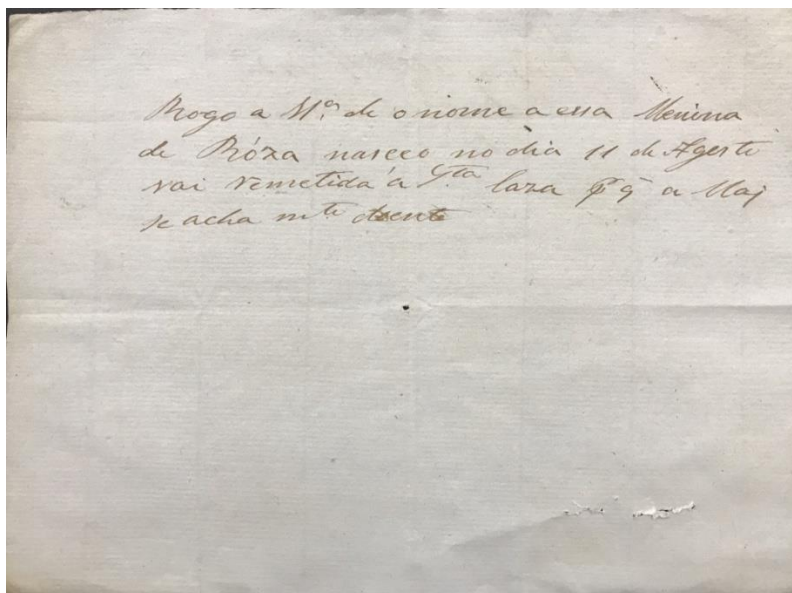 Rogo a V.ª de o nome a essa Menina
de Róza nasceo no dia 11 de Agosto
vai remetida á S.ta Caza p q̃ a Maj
se acha m.to doente